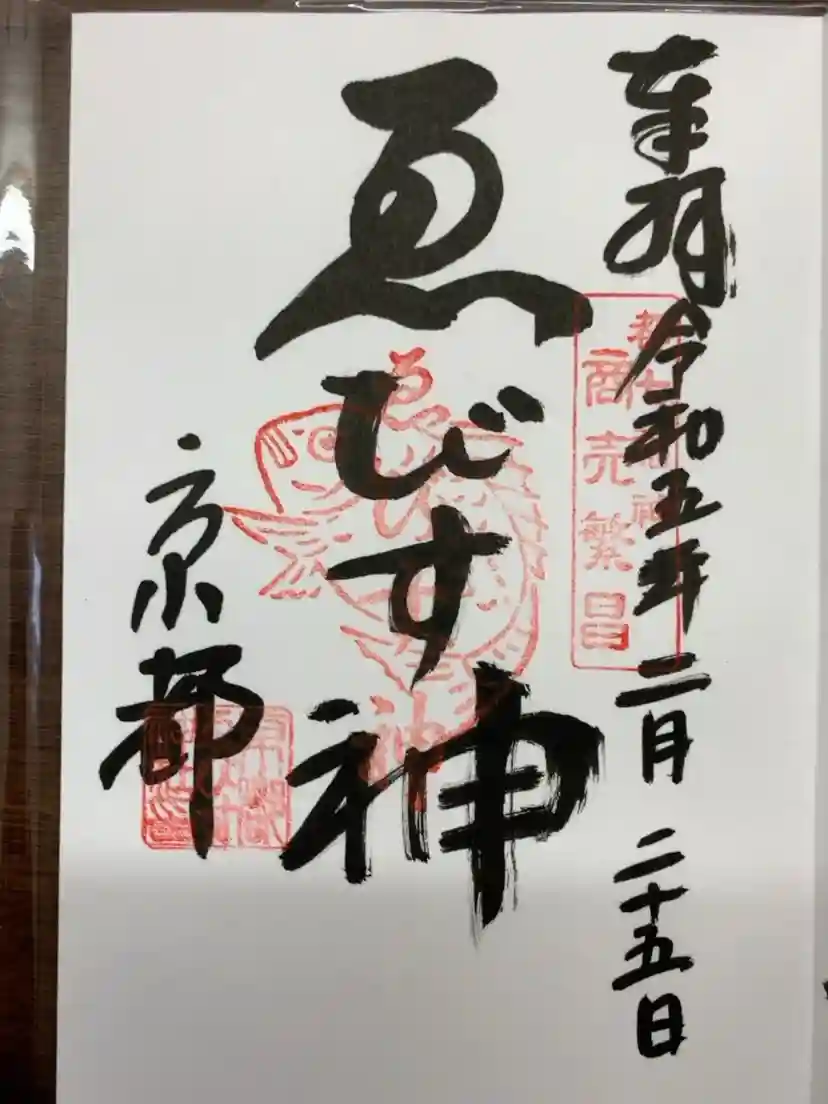 奉拝 令和五年 二月 二十五日
都七福神
商売繁昌
ゑびす神
ゑびす神
京都